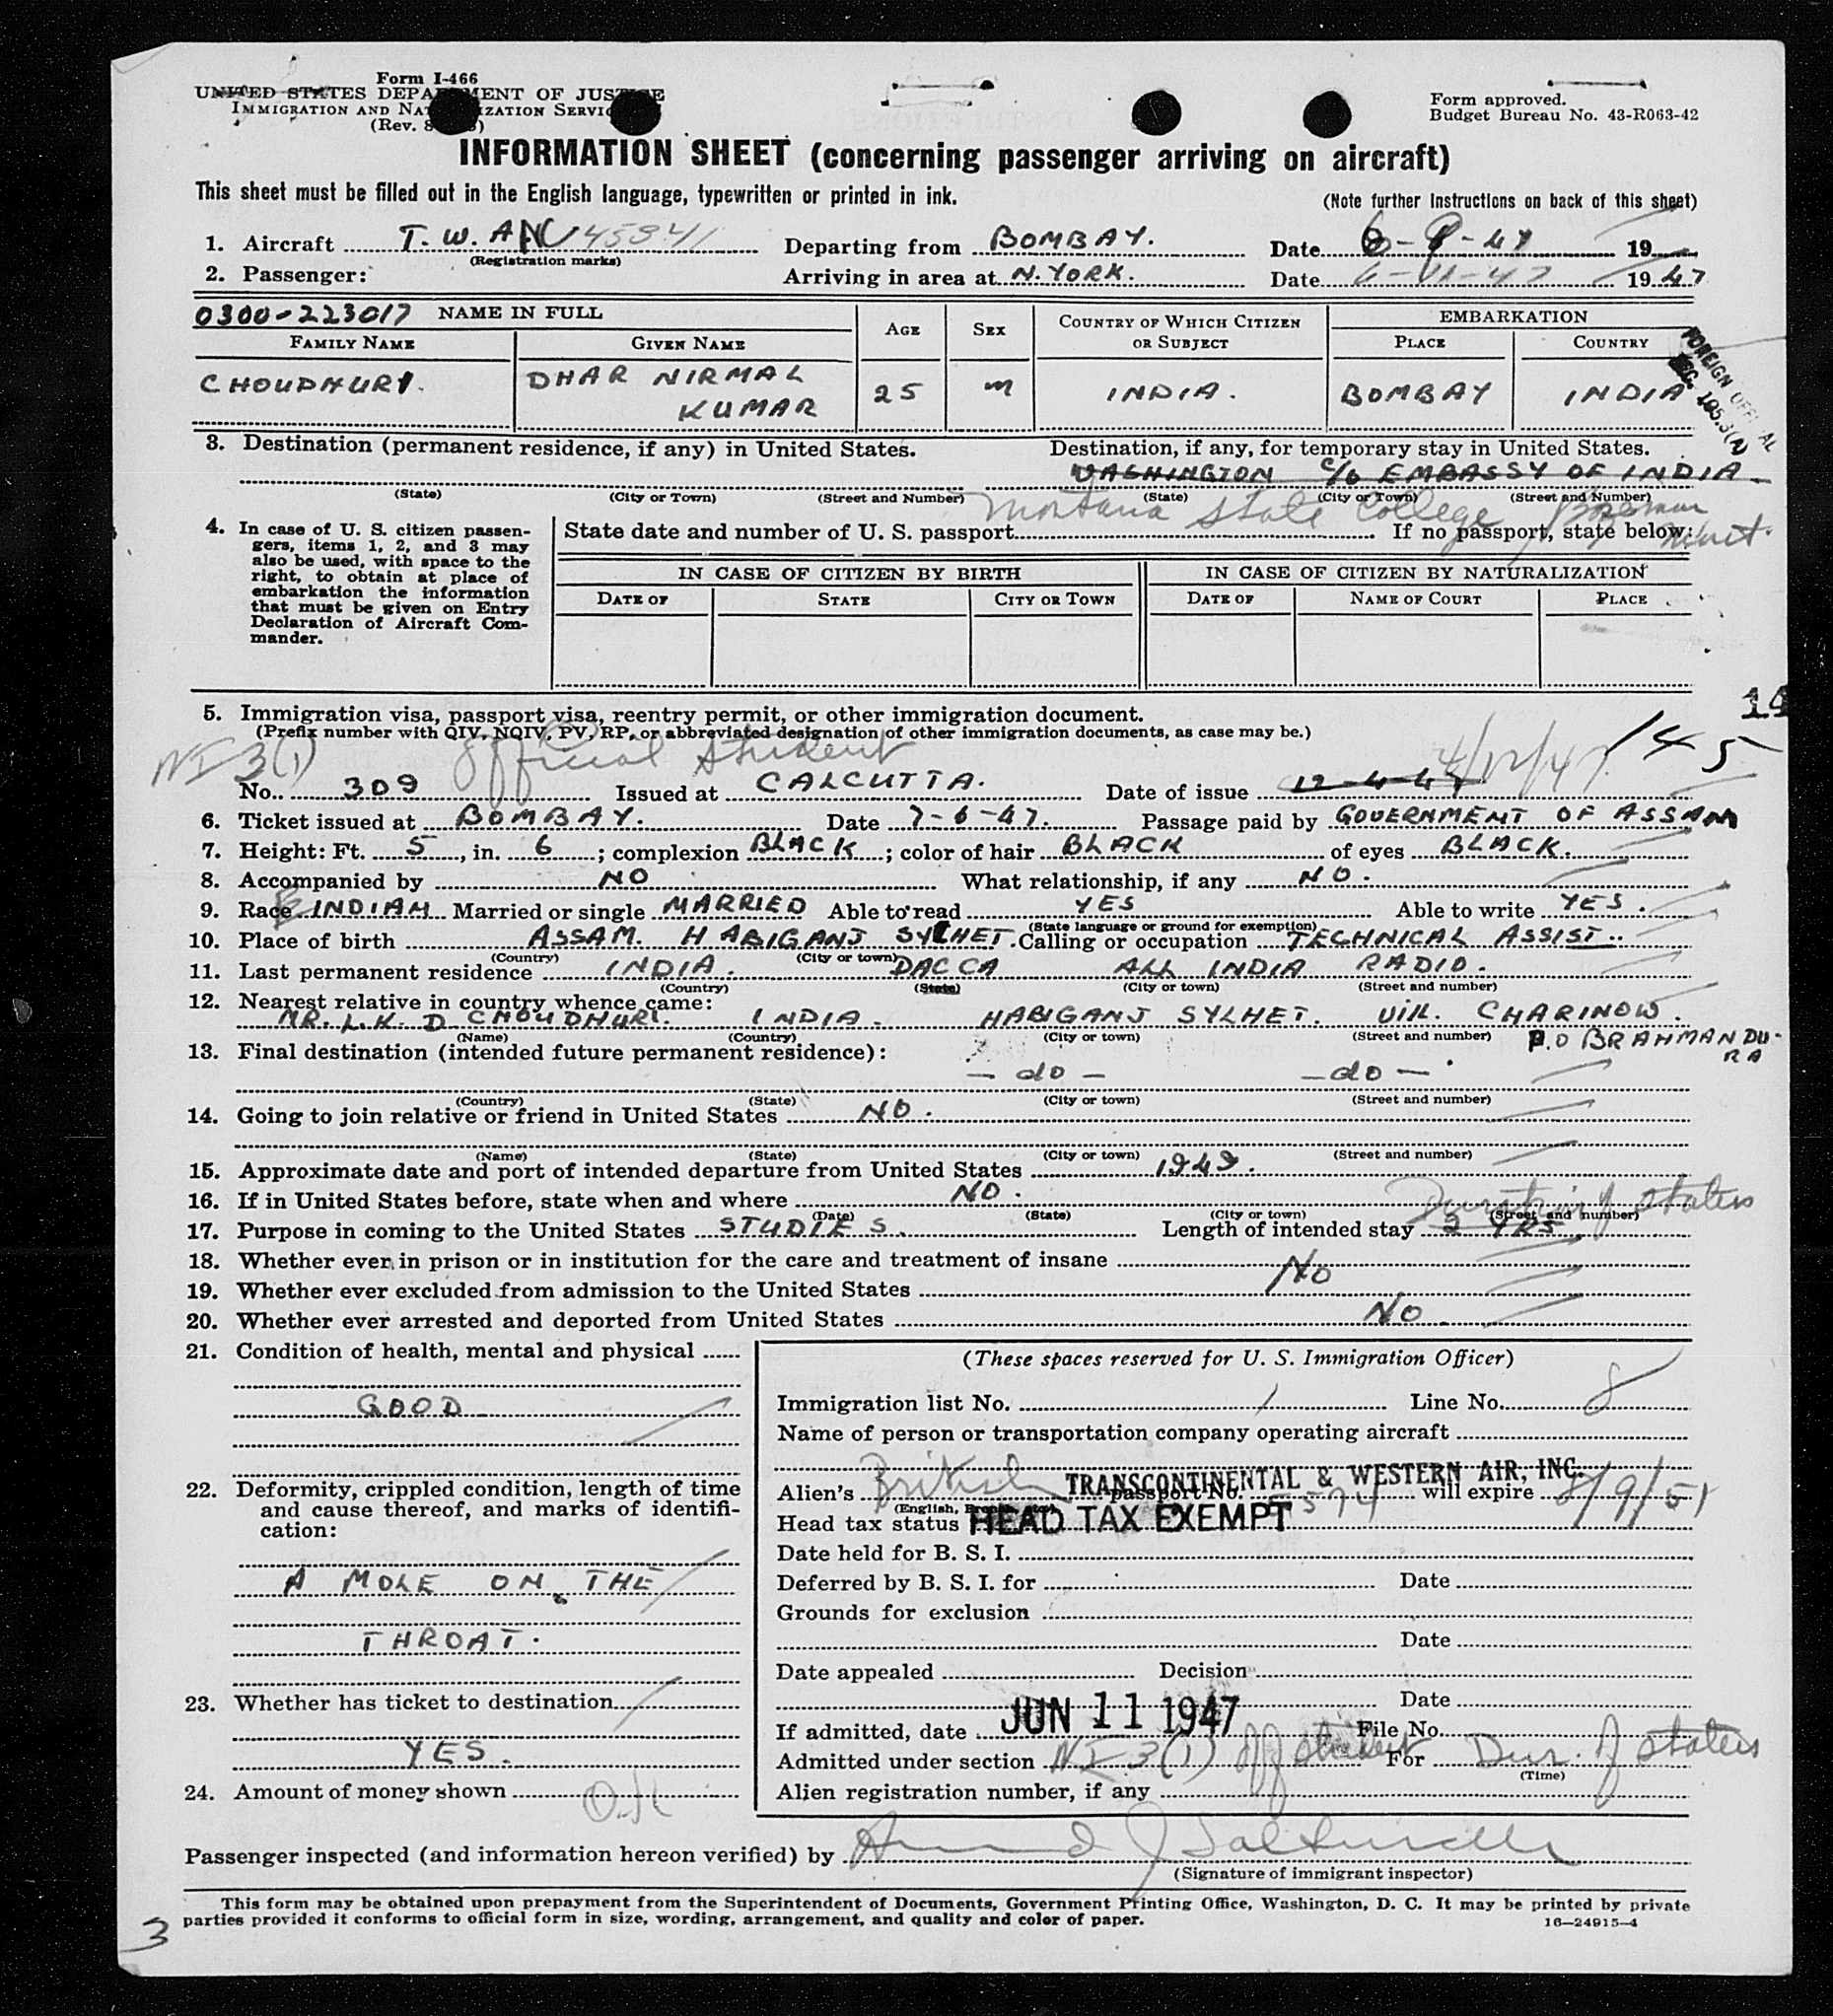 Form I-466
UNITED STATES DEPARTMENT OF JUSTICE
IMMIGRATION AND NATURALIZATION SERVICE
(Rev.
Form approved.
Budget Bureau No. 43-R063-42
INFORMATION SHEET (concerning passenger arriving on aircraft)
This sheet must be filled out in the English language, typewritten or printed in ink.
(Note further instructions on back of this sheet)
1. Aircraft T. W. A NC 45341 Departing from BOMBAY. Date 6-9-47 19
(Registration marks)
2. Passenger: Arriving in area at N. YORK. Date 6-11-47 1947
0300-223017 NAME IN FULL AGE SEX COUNTRY OF WHICH CITIZEN OR SUBJECT EMBARKATION
FAMILY NAME GIVEN NAME PLACE COUNTRY
CHOUDHURY. DHAR NIRMAL KUMAR 25 M INDIA. BOMBAY INDIA
FOREIGN OFFICIAL
SEC.
3. Destination (permanent residence, if any) in United States. Destination, if any, for temporary stay in United States.
WASHINGTON C/O EMBASSY OF INDIA
(State) (City or Town) (Street and Number) (State) (City or Town) (Street and Number)
Montana State College Bozeman Mont.
4. In case of U. S. citizen passen-
gers, items 1, 2, and 3 may
also be used, with space to the
right, to obtain at place of
embarkation the information
that must be given on Entry
Declaration of Aircraft Com-
mander.
State date and number of U. S. passport If no passport, state below:
IN CASE OF CITIZEN BY BIRTH IN CASE OF CITIZEN BY NATURALIZATION
DATE OF STATE CITY OR TOWN DATE OF NAME OF COURT PLACE
14
5. Immigration visa, passport visa, reentry permit, or other immigration document.
(Prefix number with QIV, NQIV, PV, RP, or abbreviated designation of other immigration documents, as case may be.)
NI 3(1) Official Student 4/12/47 145
No. 309 Issued at CALCUTTA. Date of issue 12-4-47
6. Ticket issued at BOMBAY. Date 7-6-47. Passage paid by GOVERNMENT OF ASSAM
7. Height: Ft. 5, in. 6; complexion BLACK; color of hair BLACK of eyes BLACK.
8. Accompanied by NO What relationship, if any NO.
9. Race E INDIAN Married or single MARRIED Able to read YES Able to write YES.
(State language or ground for exemption)
10. Place of birth ASSAM. HABIGANJ SYLHET. Calling or occupation TECHNICAL ASSIST.
(Country) (City or town)
11. Last permanent residence INDIA. DACCA ALL INDIA RADIO.
(Country) (State) (City or town) (Street and number)
12. Nearest relative in country whence came:
MR. L.K. D CHOUDHURI. INDIA. HABIGANJ SYLHET. Vill. CHARINOW.
(Name) (Country) (City or town) (Street and number) P.O BRAHMANDU-
RA
13. Final destination (intended future permanent residence):
- do - - do -
(Country) (State) (City or town) (Street and number)
14. Going to join relative or friend in United States NO.
(Name) (State) (City or town) (Street and number)
15. Approximate date and port of intended departure from United States 1949.
16. If in United States before, state when and where NO.
(Date) (State) (City or town) (Street and number)
Duration of status
17. Purpose in coming to the United States STUDIES. Length of intended stay 2 YRS
18. Whether ever in prison or in institution for the care and treatment of insane
No
19. Whether ever excluded from admission to the United States
20. Whether ever arrested and deported from United States No
21. Condition of health, mental and physical
GOOD
22. Deformity, crippled condition, length of time
and cause thereof, and marks of identifi-
cation:
A MOLE ON THE
THROAT.
23. Whether has ticket to destination
YES.
24. Amount of money shown O.K
(These spaces reserved for U. S. Immigration Officer)
Immigration list No. 1 Line No. 8
Name of person or transportation company operating aircraft
TRANSCONTINENTAL & WESTERN AIR, INC.
Alien's British passport No. will expire 8/9/51
Head tax status HEAD TAX EXEMPT
Date held for B. S. I.
Deferred by B. S. I. for Date
Grounds for exclusion
Date
Date appealed Decision
Date
If admitted, date JUN 11 1947 File No.
Admitted under section NI 3(1) Off student For Dur. of status
(Time)
Alien registration number, if any
Passenger inspected (and information hereon verified) by
(Signature of immigrant inspector)
This form may be obtained upon prepayment from the Superintendent of Documents, Government Printing Office, Washington, D. C. It may be printed by private
parties provided it conforms to official form in size, wording, arrangement, and quality and color of paper.
16—24915-4
3